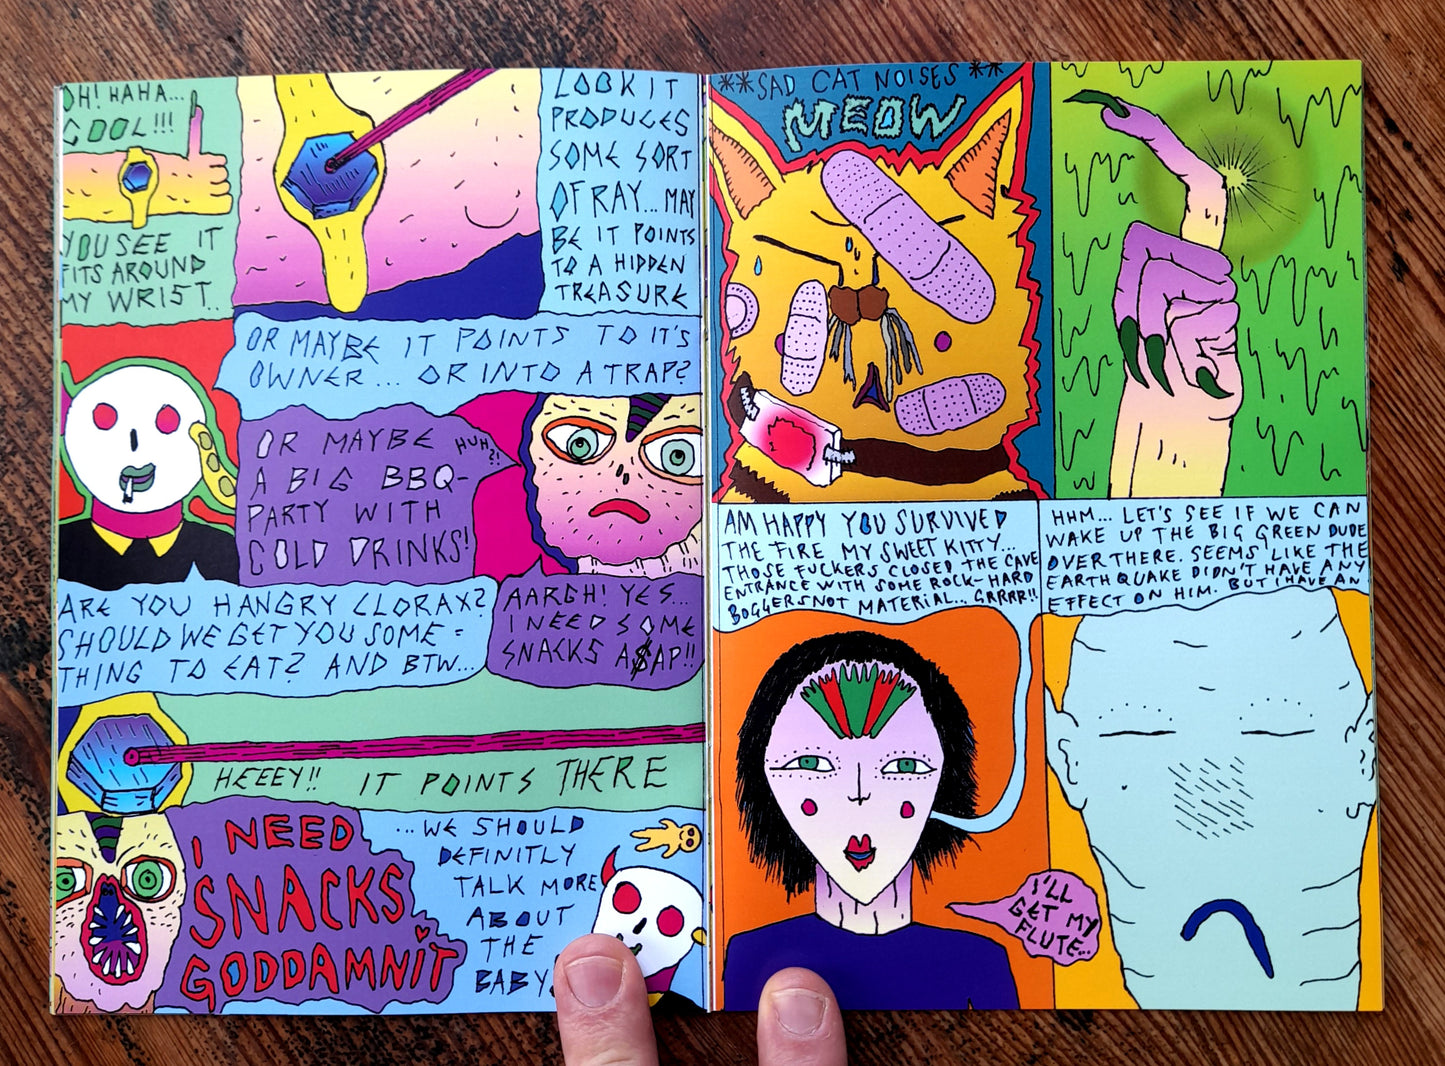 OH! HAHA...
COOL!!!
YOU SEE IT
FITS AROUND
MY WRIST..
LOOK IT
PRODUCES
SOME SORT
OF RAY... MAY
BE IT POINTS
TO A HIDDEN
TREASURE
OR MAYBE IT POINTS TO IT'S
OWNER... OR INTO A TRAP?
OR MAYBE
A BIG BBQ-
PARTY WITH
COLD DRINKS!
HUH
?!
ARE YOU HANGRY CLORAX?
SHOULD WE GET YOU SOME-
THING TO EAT? AND BTW...
AARGH! YES...
I NEED SOME
SNACKS A$AP!!
HEEEY!! IT POINTS THERE
I NEED
SNACKS
GODDAMNIT
...WE SHOULD
DEFINITLY
TALK MORE
ABOUT
THE
BABY
**SAD CAT NOISES**
MEOW
AM HAPPY YOU SURVIVED
THE FIRE MY SWEET KITTY...
THOSE FUCKERS CLOSED THE CAVE
ENTRANCE WITH SOME ROCK-HARD
BOGGERSNOT MATERIAL... GRRRR!!
HHM... LET'S SEE IF WE CAN
WAKE UP THE BIG GREEN DUDE
OVER THERE. SEEMS LIKE THE
EARTHQUAKE DIDN'T HAVE ANY
EFFECT ON HIM. BUT I HAVE AN
I'LL
GET MY
FLUTE...